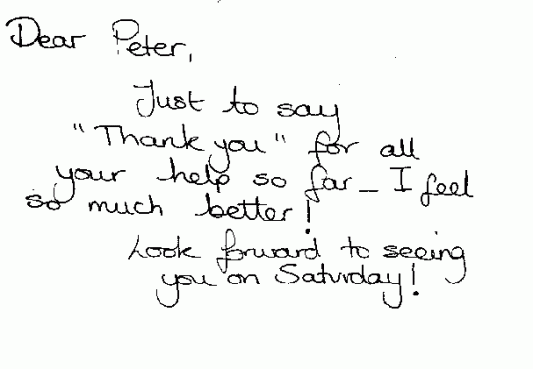 Dear Peter,
Just to say
"Thank you" for all
your help so far_ I feel
so much better!
Look forward to seeing
you on Saturday!